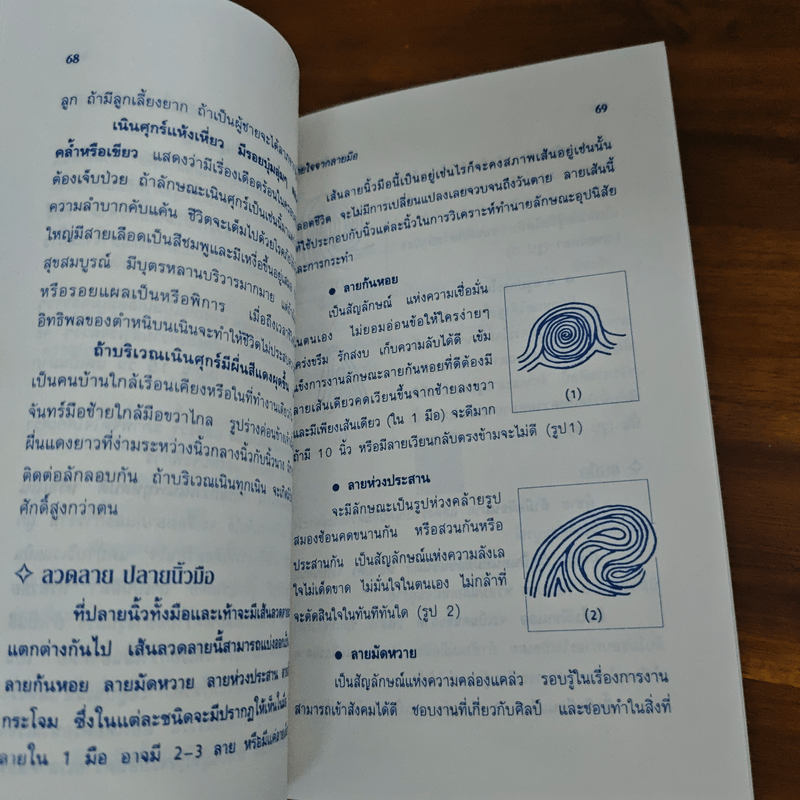 68
ลูก ถ้ามีลูกเลี้ยงยาก ถ้าเป็นผู้ชายจะได้
เนินศุกร์แห้งเหี่ยว มีรอยบุ๋ม
คล้ำหรือเขียว แสดงว่ามีเรื่องเดือดร้อน
ต้องเจ็บป่วย ถ้าลักษณะเนินศุกร์เป็นเช่นนี้
ความลำบากคับแค้น ชีวิตจะเต็มไปด้วย
ใหญ่มีสายเลือดเป็นสีชมพูและมีเหงื่อชื้นอยู่
สุขสมบูรณ์ มีบุตรหลานบริวารมากมาย
หรือรอยแผลเป็นหรือพิการ เมื่อถึง
อิทธิพลของตำหนิบนเนินจะทำให้ชีวิตไม่
ถ้าบริเวณเนินศุกร์มีผื่นสีแดงผุดขึ้น
เป็นคนบ้านใกล้เรือนเคียงหรือในที่ทำงาน
จันทร์มือซ้ายใกล้มือขวาไกล รูปร่างค่อนข้าง
ผื่นแดงยาวที่ง่ามระหว่างนิ้วกลางนิ้วกับนิ้วนาง
ติดต่อลักลอบกัน ถ้าบริเวณเนินทุกเนิน
ศักดิ์สูงกว่าตน
✧ ลวดลาย ปลายนิ้วมือ
ที่ปลายนิ้วทั้งมือและเท้าจะมีเส้น
แตกต่างกันไป เส้นลวดลายนี้สามารถแบ่งออก
ลายก้นหอย ลายมัดหวาย ลายห่วงประสาน
กระโจม ซึ่งในแต่ละชนิดจะมีปรากฏให้เห็น
ลายใน 1 มือ อาจมี 2-3 ลาย
69
จากลายมือ
เส้นลายนิ้วมือนี้เป็นอยู่เช่นไรก็จะคงสภาพเส้นอยู่เช่นนั้น
ตลอดชีวิต จะไม่มีการเปลี่ยนแปลงเลยจวบจนถึงวันตาย ลายเส้นนี้
ใช้ประกอบกับนิ้วแต่ละนิ้วในการวิเคราะห์ทำนายลักษณะอุปนิสัย
และการกระทำ
● ลายก้นหอย
เป็นสัญลักษณ์ แห่งความเชื่อมั่น
ในตนเอง ไม่ยอมอ่อนข้อให้ใครง่ายๆ
เคร่งขรึม รักสงบ เก็บความลับได้ดี เข้ม
แข็งการงานลักษณะลายก้นหอยที่ดีต้องมี
ลายเส้นเดียวคดเวียนขึ้นจากซ้ายลงขวา
และมีเพียงเส้นเดียว (ใน 1 มือ) จะดีมาก
ถ้ามี 10 นิ้ว หรือมีลายเวียนกลับตรงข้ามจะไม่ดี (รูป 1)
(1)
● ลายห่วงประสาน
จะมีลักษณะเป็นรูปห่วงคล้ายรูป
สมองซ้อนคดขนานกัน หรือสวนกันหรือ
ประสานกัน เป็นสัญลักษณ์แห่งความลังเล
ใจไม่เด็ดขาด ไม่มั่นใจในตนเอง ไม่กล้าที่
จะตัดสินใจในทันทีทันใด (รูป 2)
(2)
● ลายมัดหวาย
เป็นสัญลักษณ์แห่งความคล่องแคล่ว รอบรู้ในเรื่องการงาน
สามารถเข้าสังคมได้ดี ชอบงานที่เกี่ยวกับศิลป์ และชอบทำในสิ่งที่